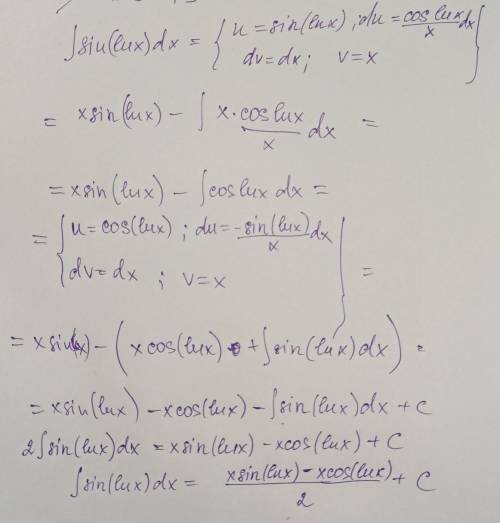 ∫sin(lnx)dx = { u = sin(lnx) ; du = cos lnx / x dx
dv = dx ; v = x }
= x sin(lnx) − ∫ x · cos lnx / x dx =
= x sin(lnx) − ∫ cos lnx dx =
= { u = cos(lnx) ; du = −sin(lnx) / x dx
dv = dx ; v = x } =
= x sin(lnx) − ( x cos(lnx) + ∫ sin(lnx) dx ) =
= x sin(lnx) − x cos(lnx) − ∫ sin(lnx) dx + C
2∫ sin(lnx) dx = x sin(lnx) − x cos(lnx) + C
∫ sin(lnx) dx = x sin(lnx) − x cos(lnx) / 2 + C